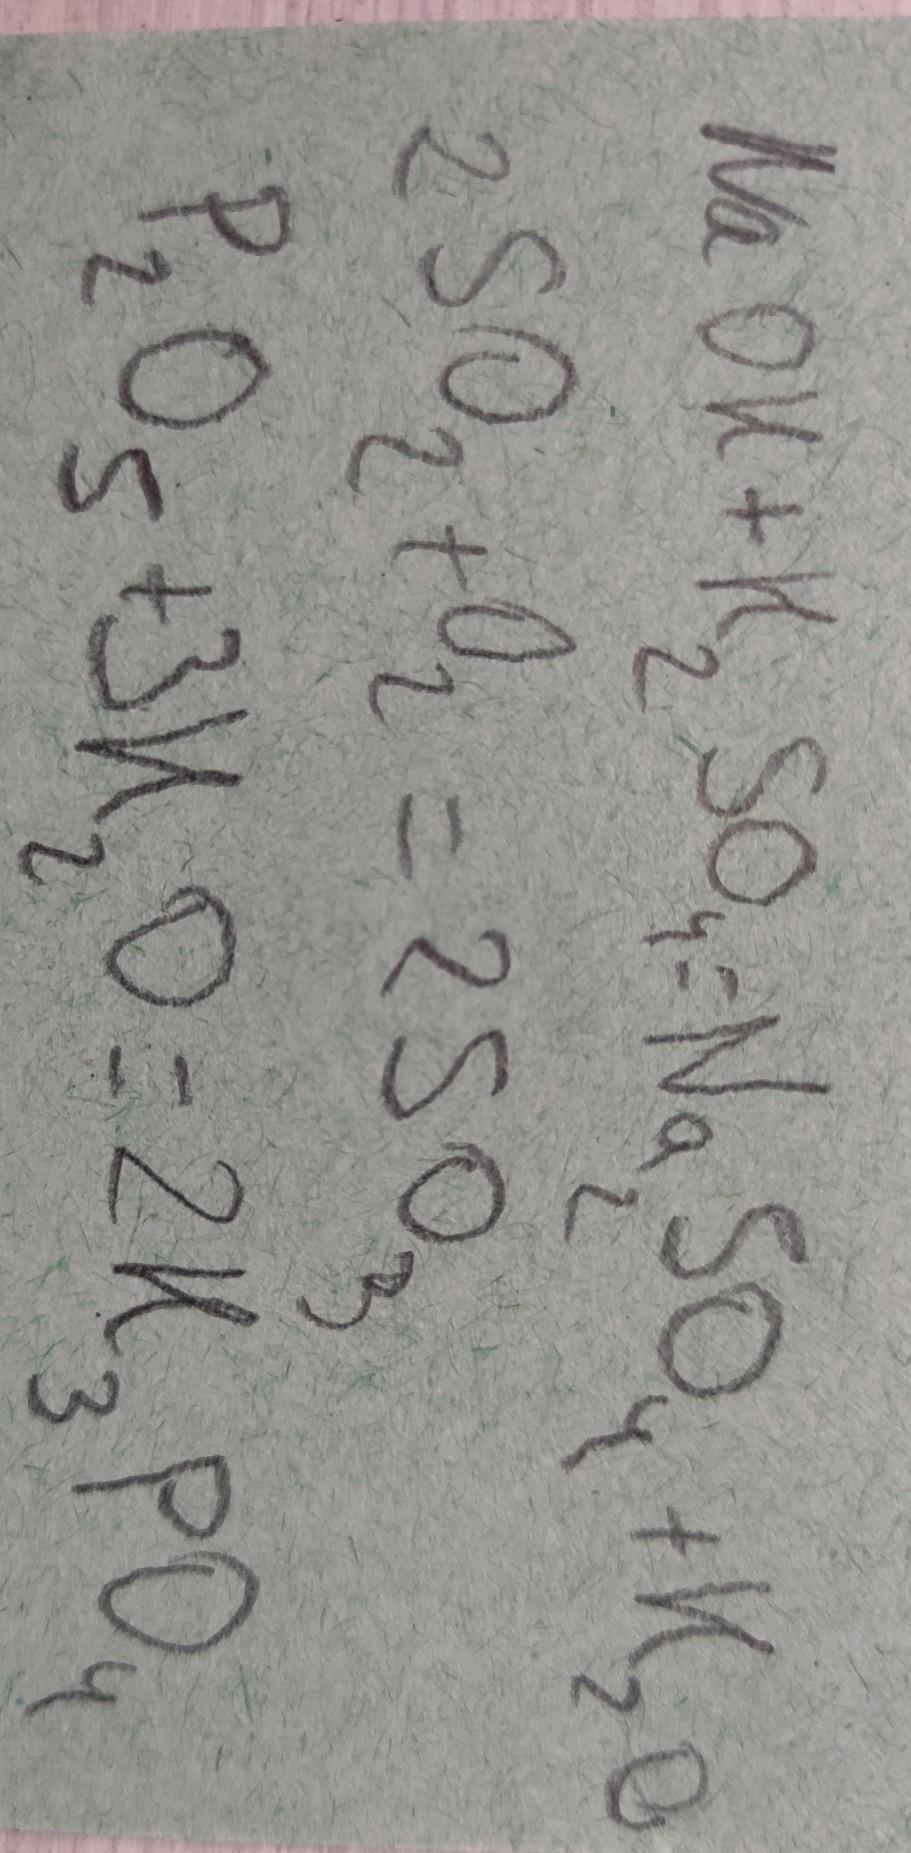 NaOK + K₂SO₄ = Na₂SO₄ + K₂O
2SO₂ + O₂ = 2SO₃
P₂O₅ + 3K₂O = 2K₃PO₄